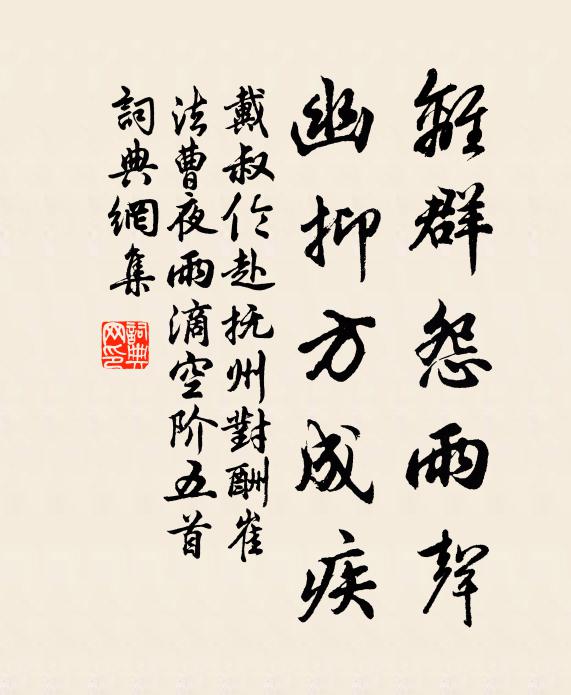 離群怨雨聲
幽抑方成疾
戴叔伦赴抚州對酬崔
法曹夜雨滴空阶五首
詞典網集
詞典網印